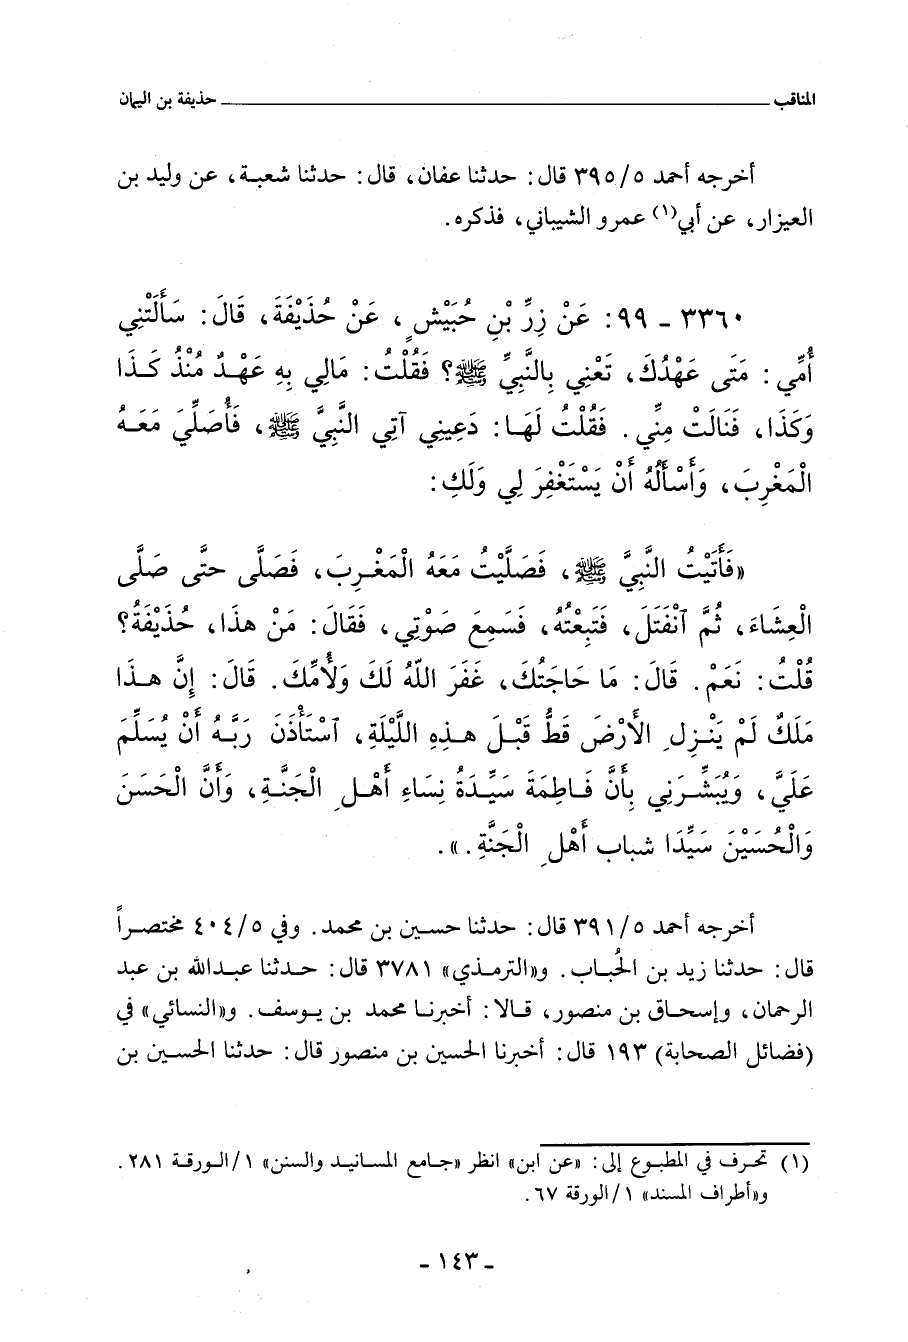 المناقب ـــــــــ حذيفة بن اليمان
أخرجه أحمد ٣٩٥/٥ قال: حدثنا عفان، قال: حدثنا شعبة، عن وليد بن
العيزار، عن أبي(١) عمرو الشيباني، فذكره.
٣٣٦٠ - ٩٩: عَنْ زِرِّ بْنِ حُبَيْشٍ، عَنْ حُذَيْفَةَ، قَالَ: سَأَلَتْنِي
أُمِّي: مَتَى عَهْدُكَ، تَعْنِي بِالنَّبِيِّ ﷺ؟ فَقُلْتُ: مَالِي بِهِ عَهْدٌ مُنْذُ كَذَا
وَكَذَا، فَنَالَتْ مِنِّي. فَقُلْتُ لَهَا: دَعِينِي آتِي النَّبِيَّ ﷺ، فَأُصَلِّيَ مَعَهُ
الْمَغْرِبَ، وَأَسْأَلُهُ أَنْ يَسْتَغْفِرَ لِي وَلَكِ:
«فَأَتَيْتُ النَّبِيَّ ﷺ، فَصَلَّيْتُ مَعَهُ الْمَغْرِبَ، فَصَلَّى حتَّى صَلَّى
الْعِشَاءَ، ثُمَّ ٱنْفَتَلَ، فَتَبِعْتُهُ، فَسَمِعَ صَوْتِي، فَقَالَ: مَنْ هذَا، حُذَيْفَةُ؟
قُلْتُ: نَعَمْ. قَالَ: مَا حَاجَتُكَ، غَفَرَ اللّهُ لَكَ وَلأُمِّكَ. قَالَ: إِنَّ هذَا
مَلَكٌ لَمْ يَنْزِلِ الأَرْضَ قَطُّ قَبْلَ هذِهِ اللَّيْلَةِ، ٱسْتَأْذَنَ رَبَّهُ أَنْ يُسَلِّمَ
عَلَيَّ، وَيُبَشِّرَنِي بِأَنَّ فَاطِمَةَ سَيِّدَةُ نِسَاءِ أَهْلِ الْجَنَّةِ، وَأَنَّ الْحَسَنَ
وَالْحُسَيْنَ سَيِّدَا شباب أَهْلِ الْجَنَّةِ.».
أخرجه أحمد ٣٩١/٥ قال: حدثنا حسين بن محمد. وفي ٤٠٤/٥ مختصراً
قال: حدثنا زيد بن الحُباب. و«الترمذي» ٣٧٨١ قال: حدثنا عبدالله بن عبد
الرحمان، وإسحاق بن منصور، قالا: أخبرنا محمد بن يوسف. و«النسائي» في
(فضائل الصحابة) ١٩٣ قال: أخبرنا الحسين بن منصور قال: حدثنا الحسين بن
(١) تحرف في المطبوع إلى: «عن ابن» انظر «جامع المسانيد والسنن» ١/الورقة ٢٨١.
و«أطراف المسند» ١/الورقة ٦٧.
- ١٤٣ -